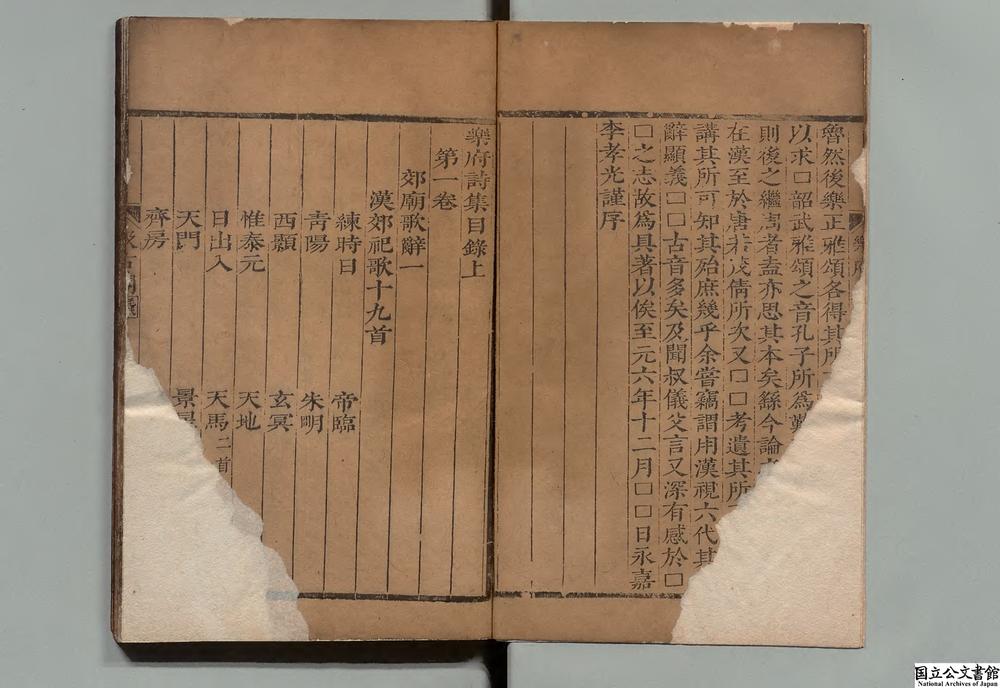 魯然後樂正雅頌各得其所
以求口韶武雅頌之音孔子所為
則後之繼周者盍亦思其本矣繇今論
在漢至於唐若茂倩所次又口口考遺其所
講其所可知其殆庶幾乎余嘗竊謂用漢視六代其
辭顯義口口古音多矣及聞叔儀父言又深有感於口
口之志故為具著以俟至元六年十二月口口日永嘉
李孝光謹序
樂府
樂府詩集目錄上
第一卷
郊廟歌辭一
漢郊祀歌十九首
練時日 帝臨
靑陽 朱明
西顥 玄冥
惟泰元 天地
日出入 天馬二首
天門 景星
齊房
国立公文書館
National Archives of Japan